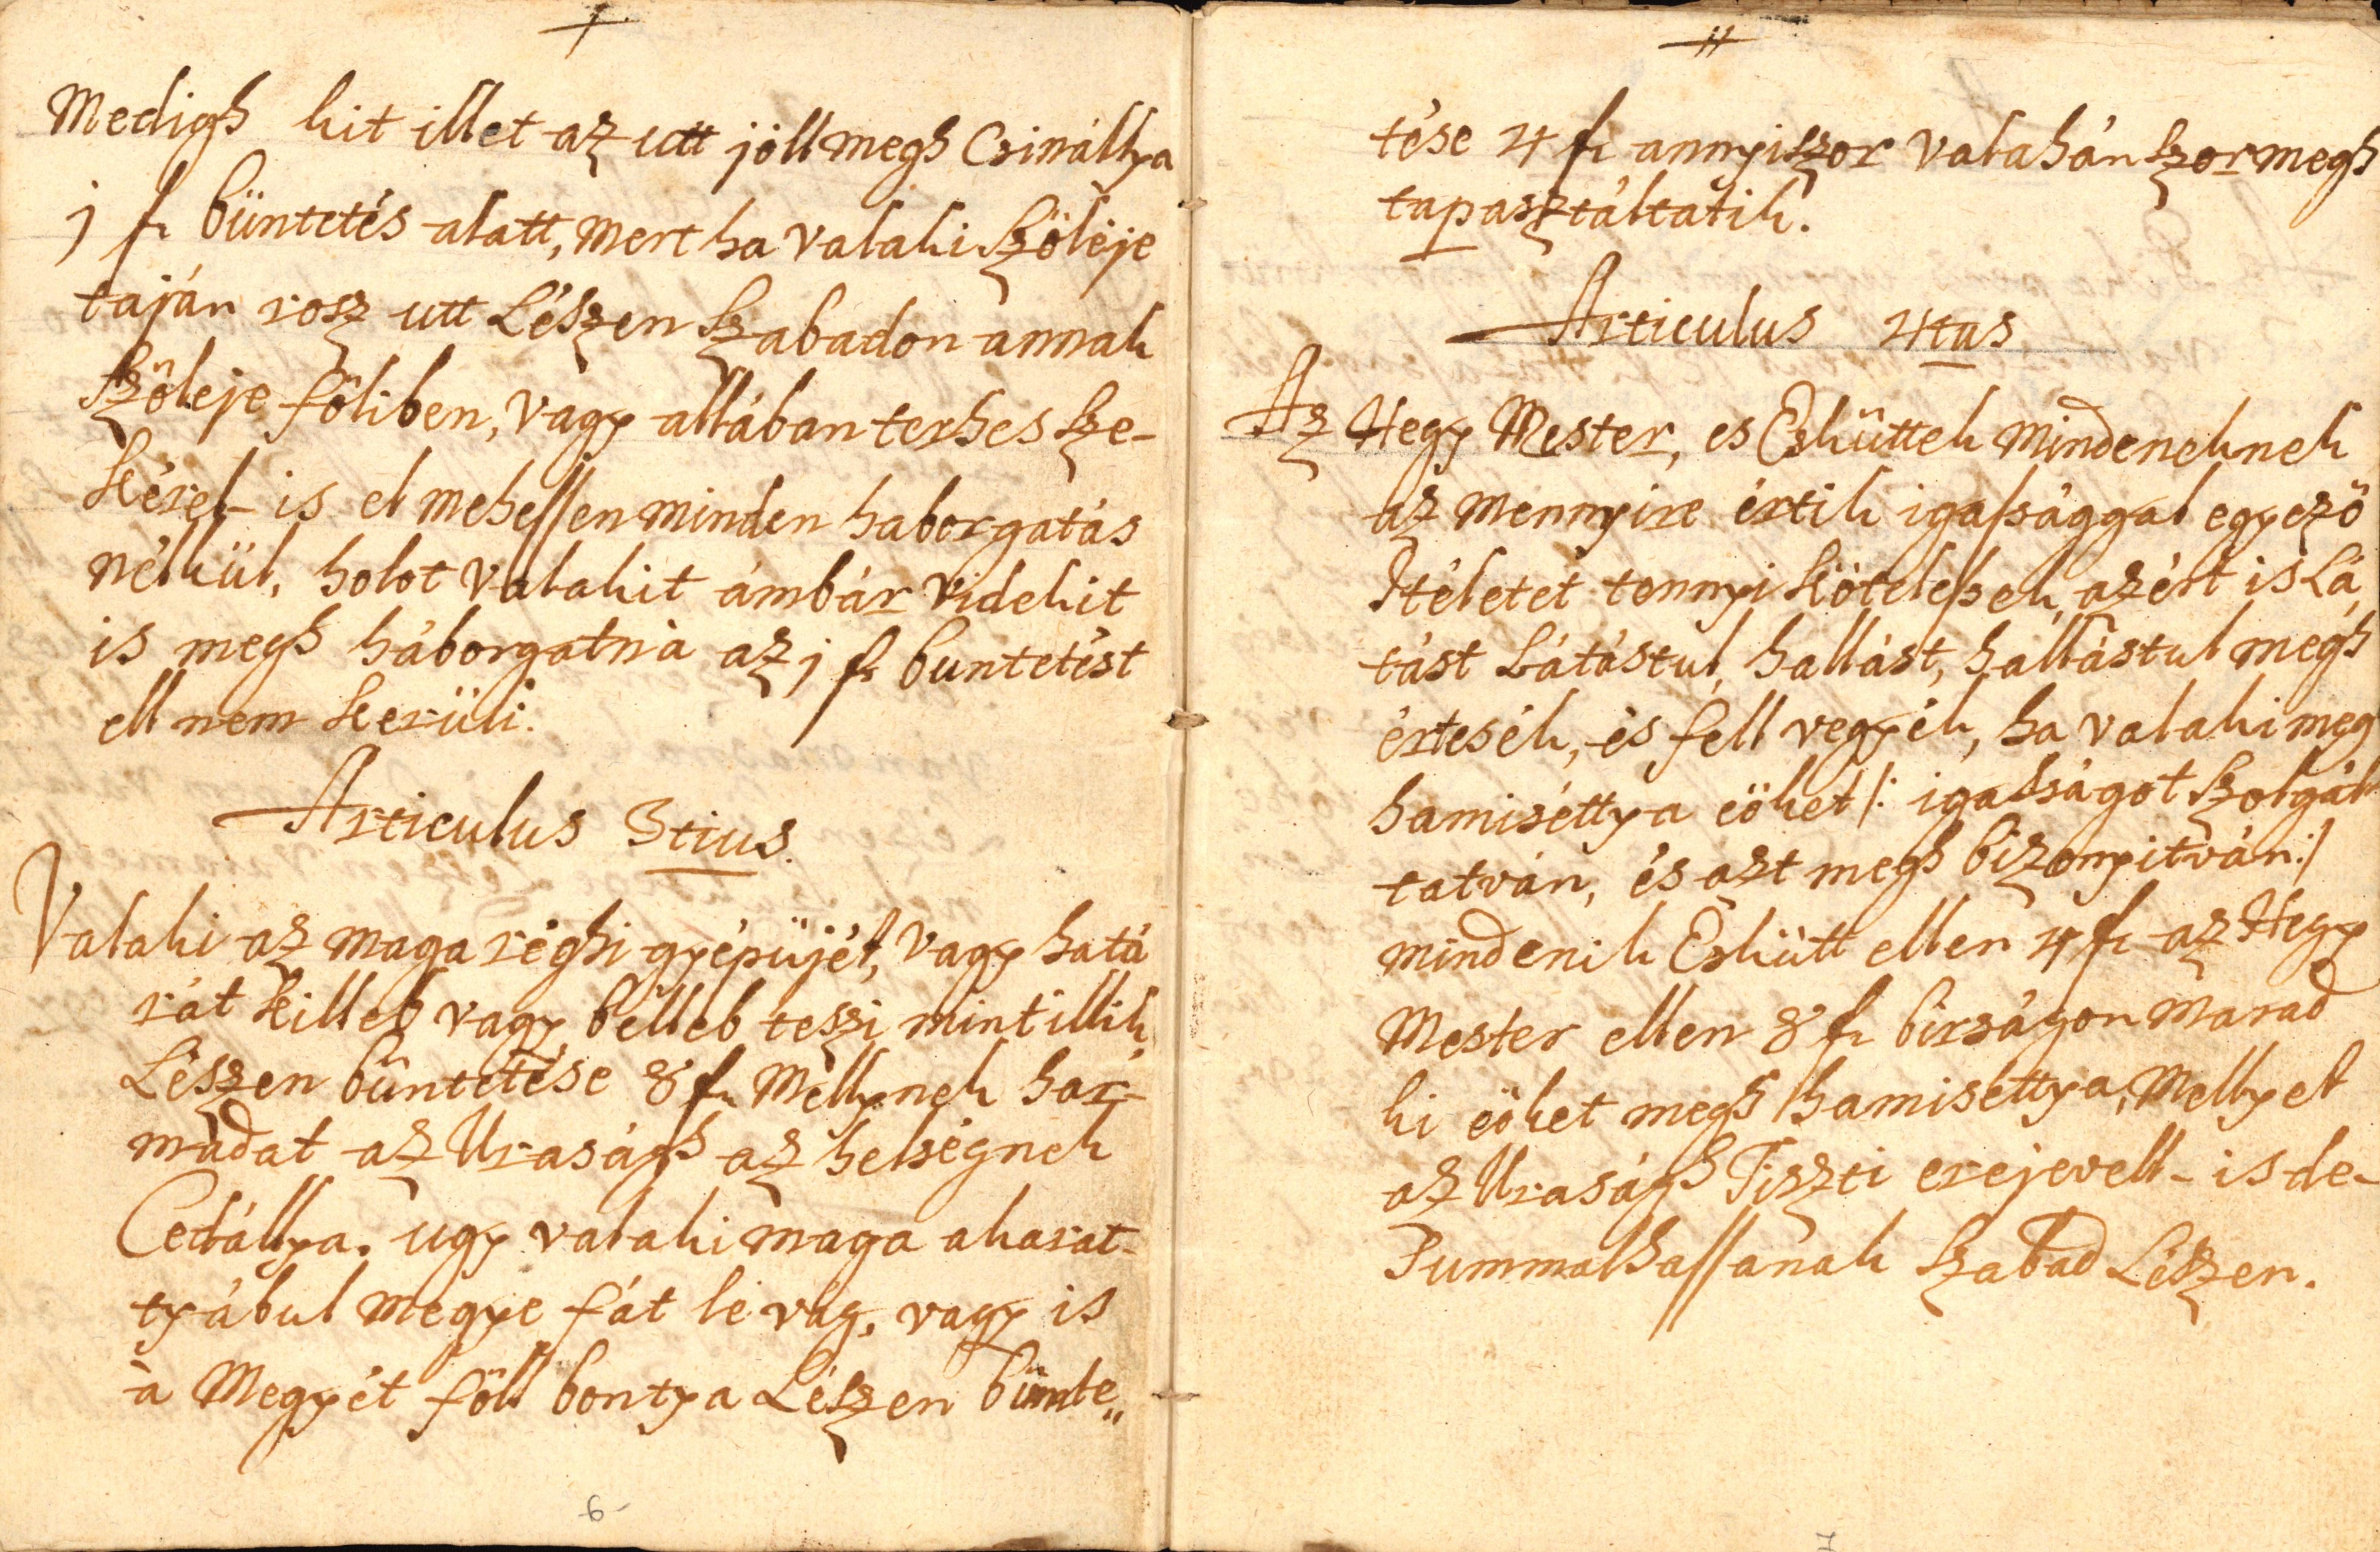 Medigh kit illet az utt jóll megh Csinállya
j fr büntetés alatt, mert ha valaki Szöleje
táján rosz utt Lészen Szabadon annak
Szöleje föliben, vagy allában terhes Sze-
kérel- is el mehessen minden haborgatás
nélkül, holot valakit ámbár videkit
is megh háborgatna az j fr buntetést
ell nem kerüli.
Articulus 3tius.
Valaki az maga réghi gyépüjét, vagy hatá
rát killeb vagy bélleb teszi mint illik,
Lészen büntetése 8 fr Mellynek har-
madat az Uraságh az helségnek
Cedállya. ugy valaki maga akarat-
tyábul megye fát le vág, vagy is
a Megyét föll bontya Lészen bünte„
6
11
tése 4 fr annyiszor valahánszor megh
tapasztáltatik.
Articulus 4tus
Az Hegy Mester, es Esküttek mindeneknek
az mennyire értik igassággal egyező
Itéletet tennyi kötelessek, azért is Lá,
tást Látástul, hallást, hallástul megh
értesék, és fell vegyék, ha valaki meg
hamiséttya eöket /: igasságot Szolgál-
tatván, és azt megh bizonyitván :/
mindenik Eskütt ellen 4 fr az Hegy
Mester ellen 8 fr birságon marad
ki eöket megh hamisettya, Mellyet
az Uraságh Tiszti erejevell- is de-
Summalhassanak Szabad Lészen.
7